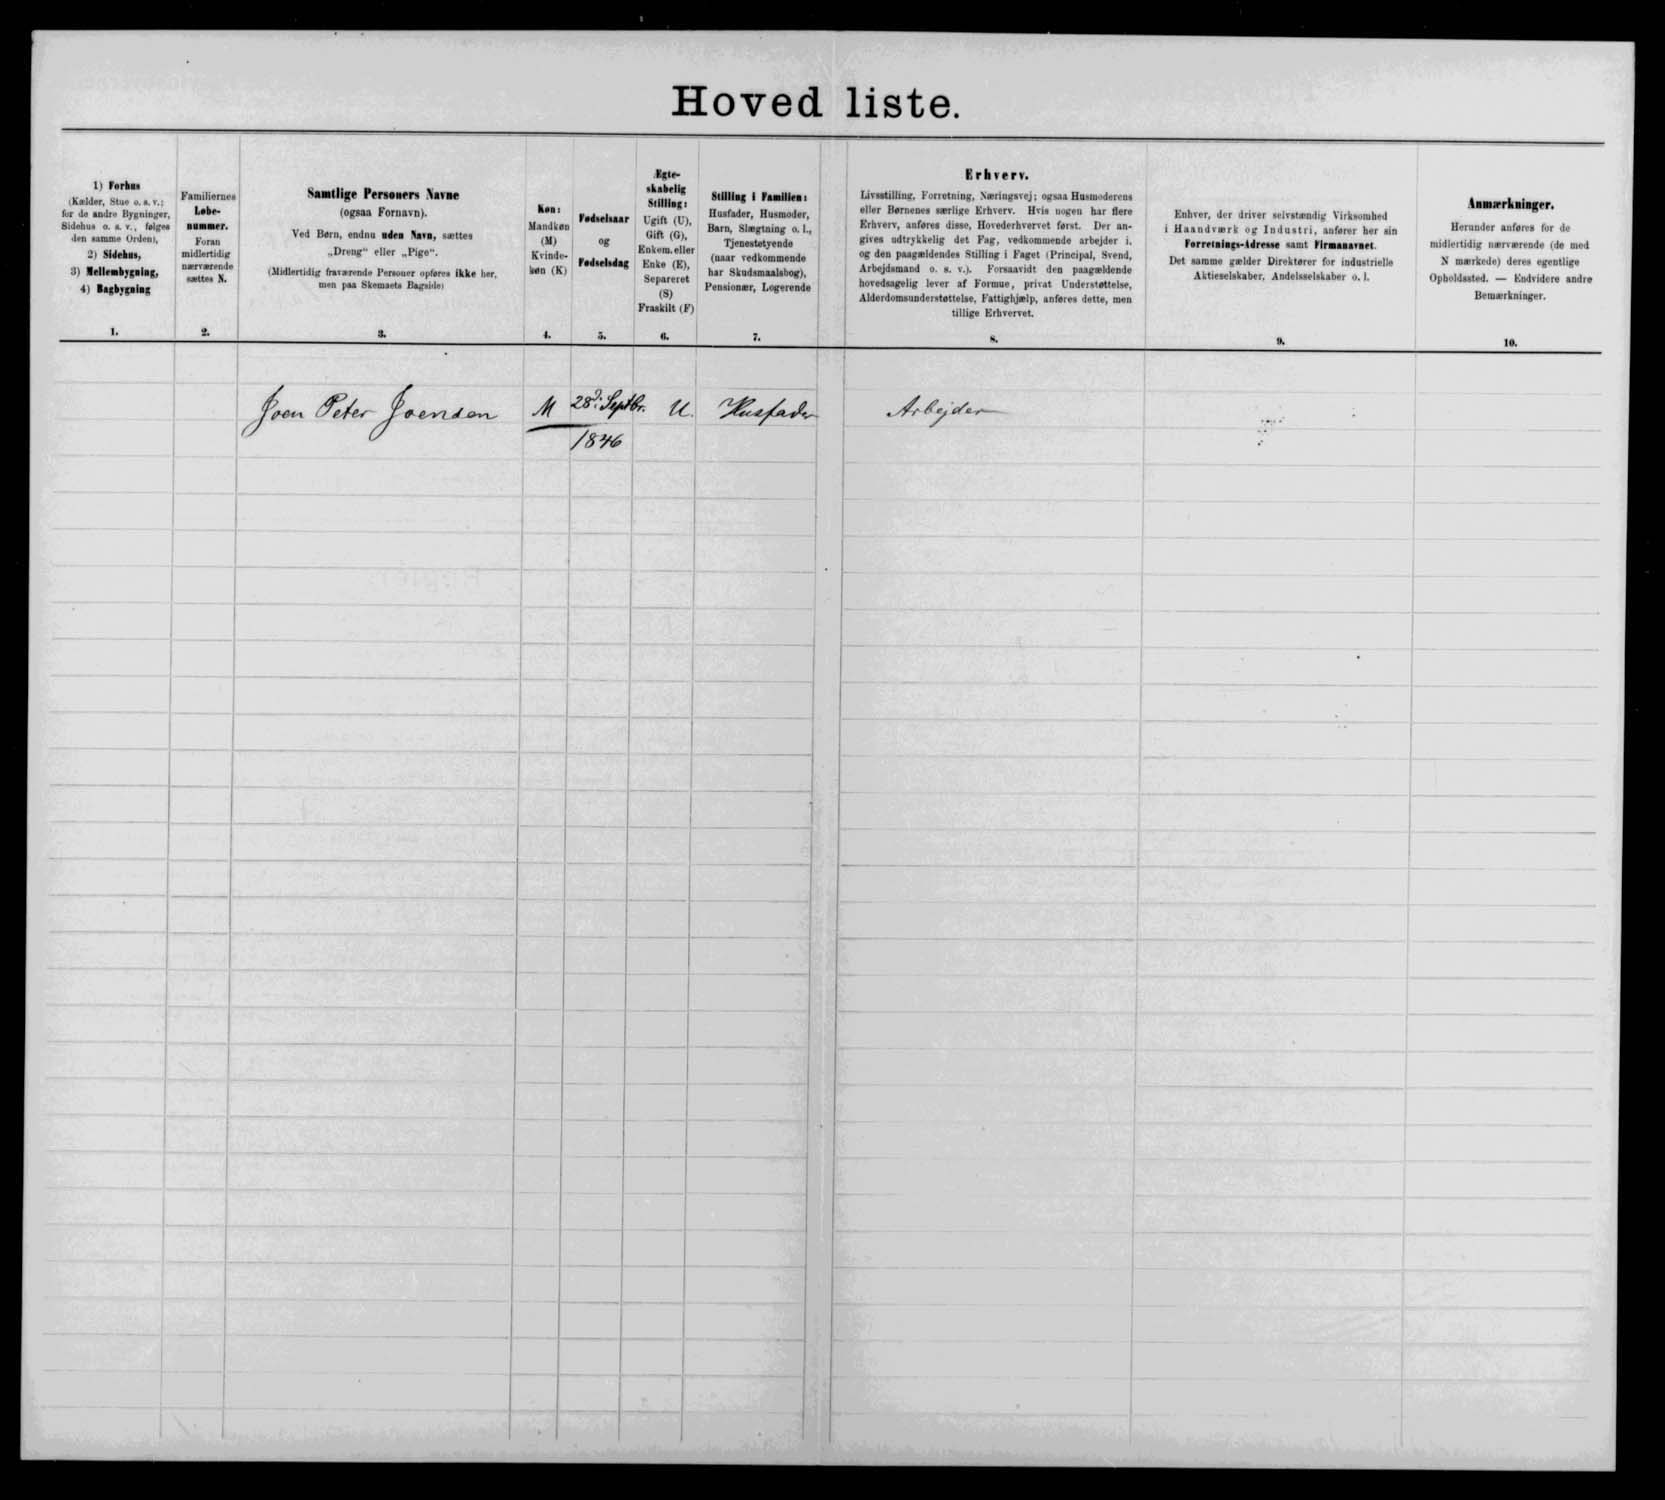 Hoved liste.
1) Forhus
(Kælder, Stue o. s. v.;
for de andre Bygninger,
Sidehus o. s. v., følges
den samme Orden),
2) Sidehus,
3) Mellembygning,
4) Bagbygning
1.
Familiernes
Løbe-
nummer.
Foran
midlertidig
nærværende
sættes N.
2.
Samtlige Personers Navne
(ogsaa Fornavn).
Ved Børn, endnu uden Navn, sættes
„Dreng“ eller „Pige“.
(Midlertidig fraværende Personer opføres ikke her,
men paa Skemaets Bagside)
3.
Køn:
Mandkøn
(M)
Kvinde-
køn (K)
4.
Fødselsaar
og
Fødselsdag
5.
Ægte-
skabelig
Stilling:
Ugift (U),
Gift (G),
Enkem. eller
Enke (E),
Separeret
(S)
Fraskilt (F)
6.
Stilling i Familien:
Husfader, Husmoder,
Barn, Slægtning o. l.,
Tjenestetyende
(naar vedkommende
har Skudsmaalsbog),
Pensionær, Logerende
7.
Erhverv.
Livsstilling, Forretning, Næringsvej; ogsaa Husmoderens
eller Børnenes særlige Erhverv. Hvis nogen har flere
Erhverv, anføres disse, Hovederhvervet først. Der an-
gives udtrykkelig det Fag, vedkommende arbejder i,
og den paagældendes Stilling i Faget (Principal, Svend,
Arbejdsmand o. s. v.). Forsaavidt den paagældende
hovedsagelig lever af Formue, privat Understøttelse,
Alderdomsunderstøttelse, Fattighjælp, anføres dette, men
tillige Erhvervet.
8.
Enhver, der driver selvstændig Virksomhed
i Haandværk og Industri, anfører her sin
Forretnings-Adresse samt Firmanavnet.
Det samme gælder Direktører for industrielle
Aktieselskaber, Andelsselskaber o. l.
9.
Anmærkninger.
Herunder anføres for de
midlertidig nærværende (de med
N mærkede) deres egentlige
Opholdssted. — Endvidere andre
Bemærkninger.
10.
Joen Peter Joensen M 28d: Septbr. U. Husfader Arbejder
1846